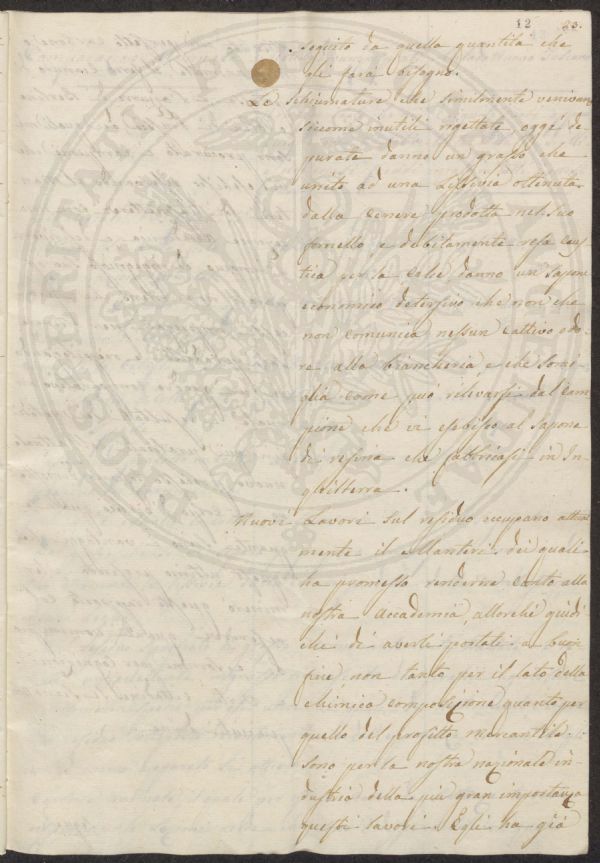 12 23.
seguito da quella quantità che
gli farà bisogno.
Le Schiumature che similmente venivano
siccome inutili rigettate, oggi de
purate danno un grasso che
unito ad una Lissivia ottenuta
dalla Cenere prodotta nel suo
fornello e debitamente resa caus
tica per la Calce danno un Sapone
economico detersivo che non che
non comunica nessun cattivo odo
re alla biancheria e che somi
glia come può rilevarsi dal Cam
pione che vi esebisco al Sapone
di resina che fabbricasi in In
ghilterra.
Nuovi Lavori sul residuo occupano attual
mente il Manteri dei quali
ha promesso renderne conto alla
nostra Accademia, allorché giudi
chi di averli portati a buon
fine non tanto per il lato della
chimica composizione quanto per
quello del profitto mercantile.
Sono per la nostra nazionale in
dustria della più gran importanza
questi lavori. Egli ha già
PROSPERITATI